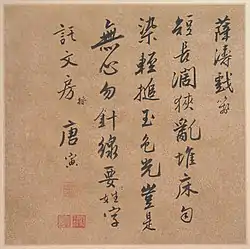 薛濤戲箋
短長濶狹亂堆床勻
染輕搥玉色光豈是
無心勿針線要姓字
託文房
唐寅